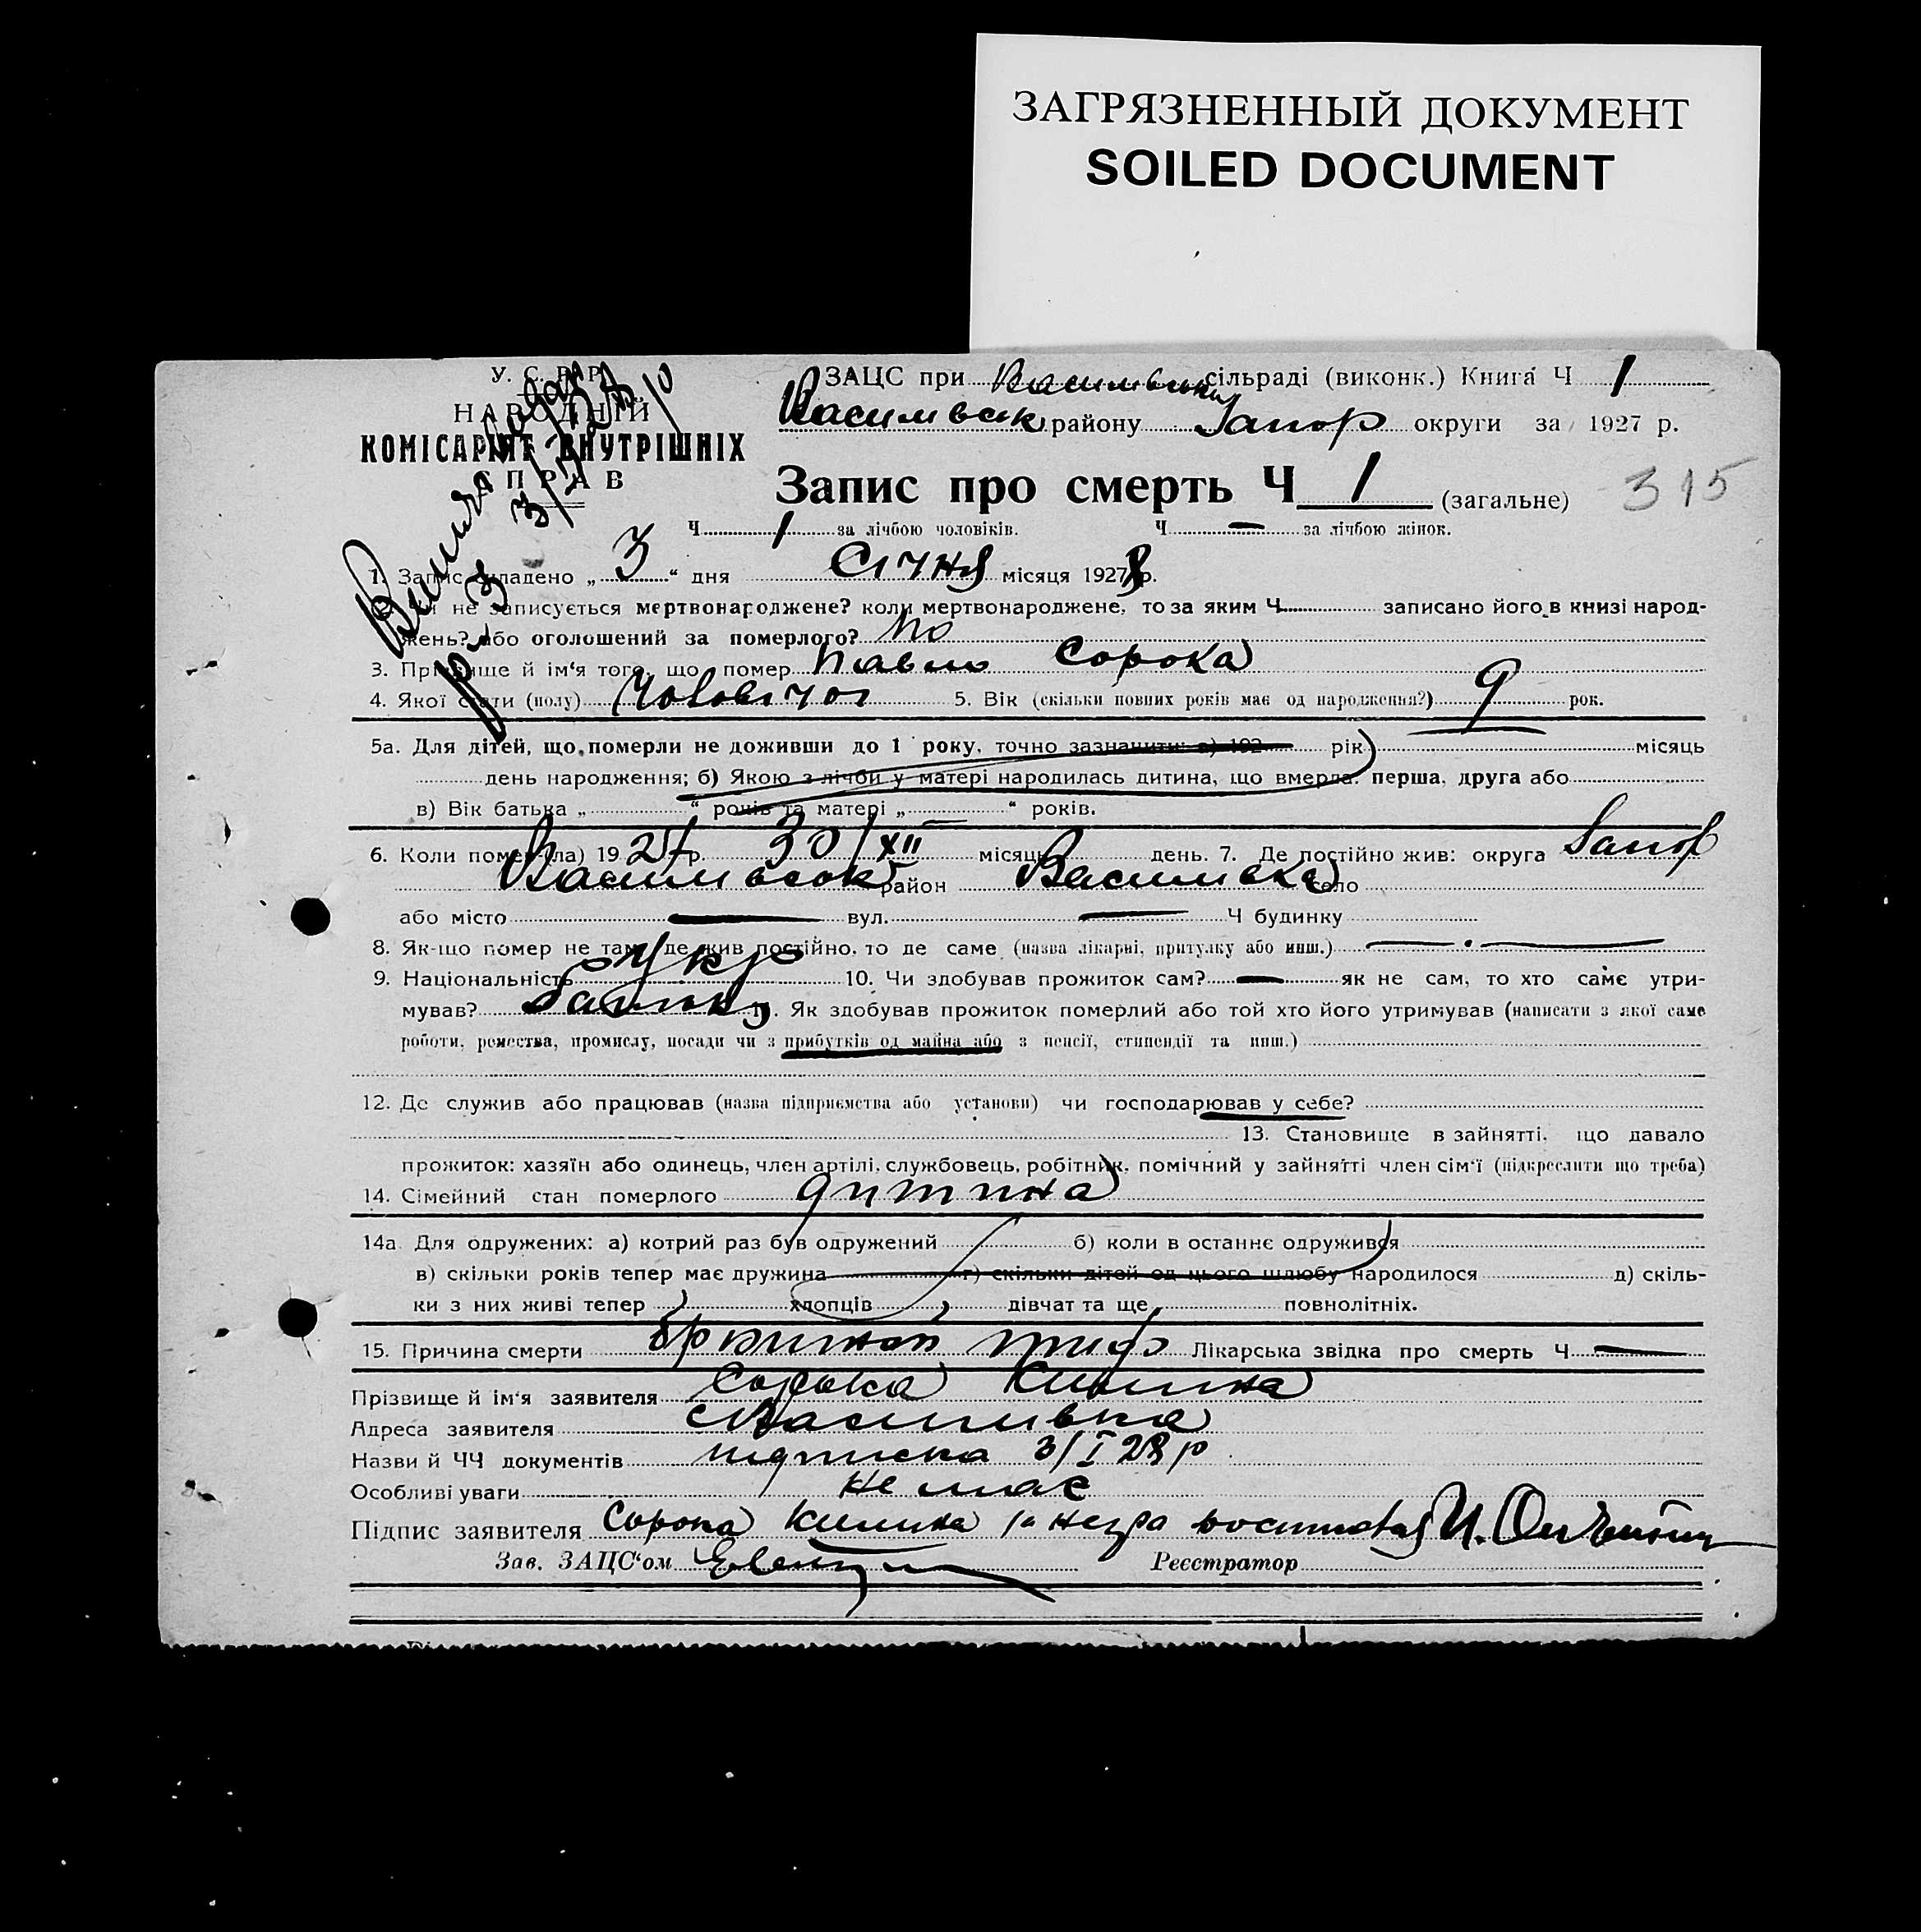 ЗАГРЯЗНЕННЫЙ ДОКУМЕНТ
SOILED DOCUMENT
У. С. Р. Р.
НАРОДНІЙ
КОМІСАРІЯТ ВНУТРІШНІХ
СПРАВ
ЗАЦС при Василівській сільраді (виконк.) Книга Ч 1
Василівськ району Запор округи за 1927 р.
Запис про смерть Ч 1 (загальне) 315
Ч 1 за лічбою чоловіків. Ч — за лічбою жінок.
1. Запис складено „ 3 “ дня Січня місяця 1928 р.
2. Чи не записується мертвонароджене? коли мертвонароджене, то за яким Ч записано його в книзі народ-
жень? або оголошений за померлого? Но
3. Прізвище й ім‘я того, що помер Павло Сорока
4. Якої стати (полу) Чоловічої 5. Вік (скільки повних років має од народження?) 9 рок.
5а. Для дітей, що померли не доживши до 1 року, точно зазначити: а) 192 рік місяць
день народження; б) Якою з лічби у матері народилась дитина, що вмерла: перша, друга або
в) Вік батька „ “ років та матері „ “ років.
6. Коли помер(ла) 1927 р. 30/XII місяць день. 7. Де постійно жив: округа Запор
Василівськ район Василівка село
або місто — вул. — Ч будинку
8. Як-що помер не там, де жив постійно, то де саме (назва лікарні, притулку або инш.) —
9. Національність Укр 10. Чи здобував прожиток сам? — як не сам, то хто саме утри-
мував? Батько 11. Як здобував прожиток померлий або той хто його утримував (написати з якої саме
роботи, ремества, промислу, посади чи з прибутків од майна або з пенсії, стипендії та инш.)
12. Де служив або працював (назва підприємства або установи) чи господарював у себе?
13. Становище в зайнятті, що давало
прожиток: хазяїн або одинець, член артілі, службовець, робітник, помічний у зайнятті член сім‘ї (підкреслити що треба)
14. Сімейний стан померлого дитина
14а. Для одружених: а) котрий раз був одружений б) коли в останнє одружився
в) скільки років тепер має дружина г) скільки дітей од цього шлюбу народилося д) скіль-
ки з них живі тепер хлопців дівчат та ще повнолітніх.
15. Причина смерти брюшной тиф Лікарська звідка про смерть Ч —
Прізвище й ім‘я заявителя Сорока Килина
Адреса заявителя с Василивка
Назви й ЧЧ документів підписка 3/I 28 р
Особливі уваги Не має
Підпис заявителя Сорока Килина
Зав. ЗАЦС‘ом Реєстратор